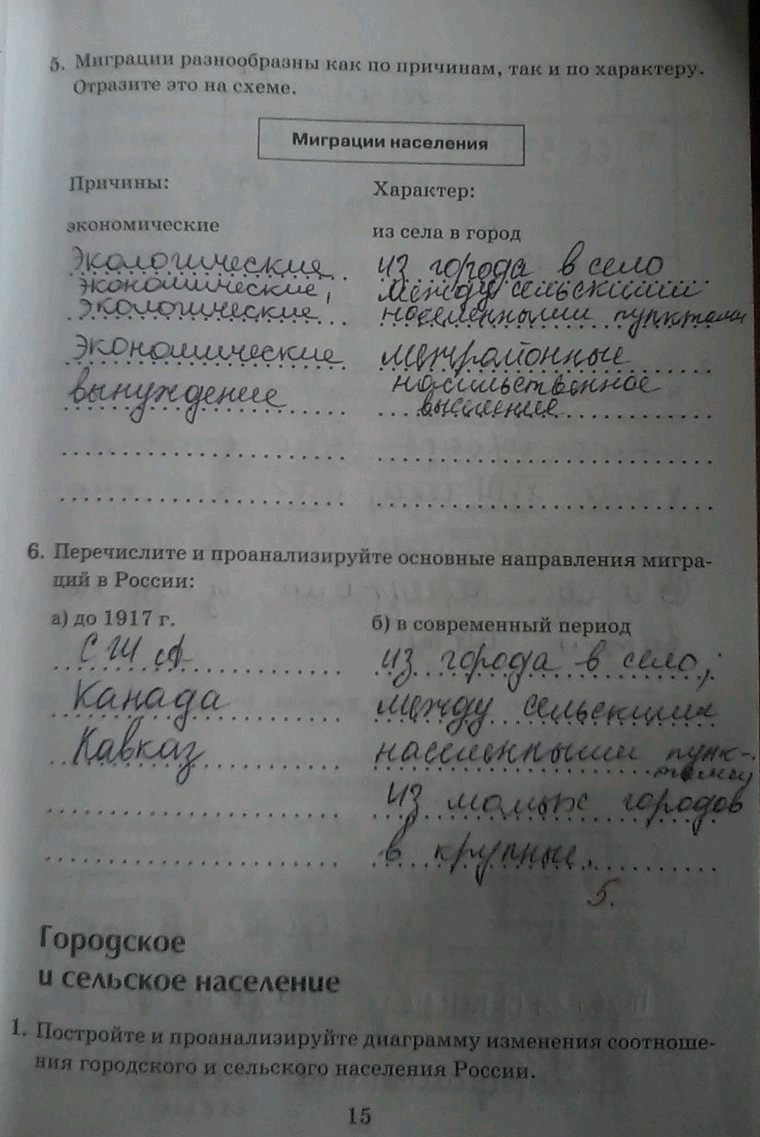 5. Миграции разнообразны как по причинам, так и по характеру.
Отразите это на схеме.
Миграции населения
Причины:
Характер:
экономические
из села в город
Экологические
из города в село
экономические,
между сельскими
экологические
населенными пунктами
Экономические
межрайонные
вынуждение
насильственное
выселение
6. Перечислите и проанализируйте основные направления мигра-
ций в России:
а) до 1917 г.
б) в современный период
США
из города в село;
Канада
между сельскими
Кавказ
населенными пунк-
тами
из малых городов
в крупные.
5.
Городское
и сельское население
1. Постройте и проанализируйте диаграмму изменения соотноше-
ния городского и сельского населения России.
15